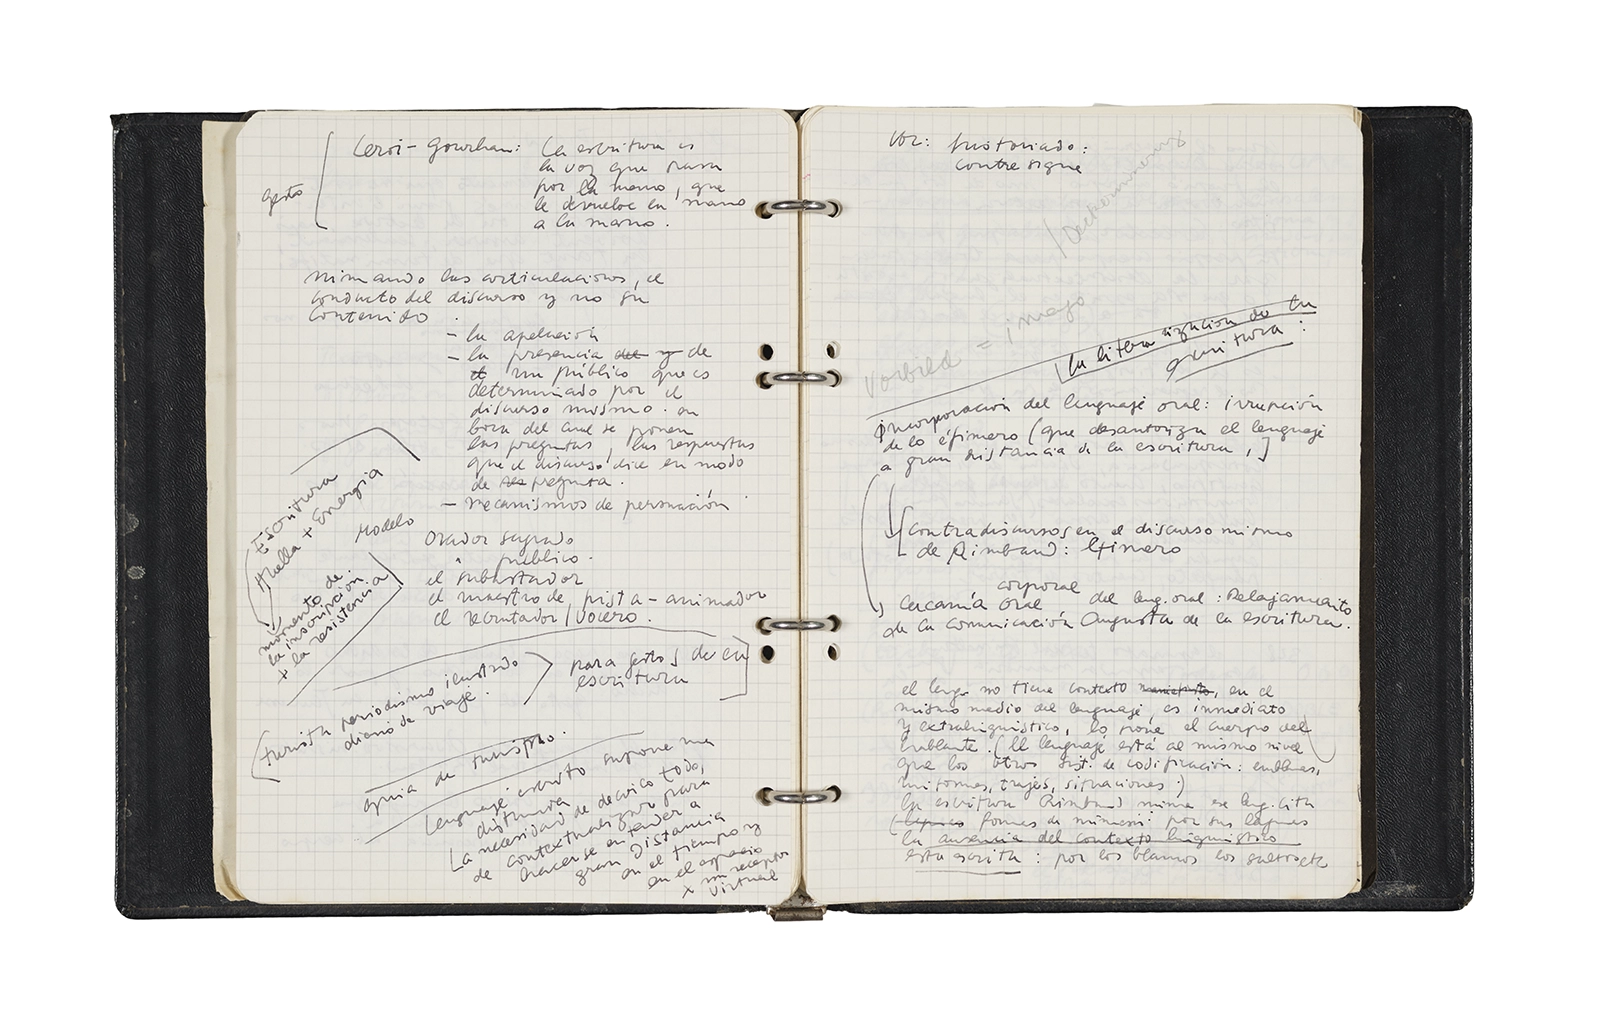 gesto
Leroi-Gourhan: La escritura es
la voz que pasa
por la mano, que
le devuelve en mano
a la mano.
Mimando las articulaciones, el
conducto del discurso y no su
contenido.
- la apelación
- la presencia del y de
un público que es
determinado por el
discurso mismo. en
boca del cual se ponen
las preguntas, las respuestas
que el discurso dice en modo
de pregunta.
- mecanismos de persuación.
Escritura
Huella + Energía
Modelo
momento de
la inscripción
x la resistencia
Orador sagrado
" público.
el subastador
el maestro de pista-animador
el recrutador / vocero.
(turista periodismo ilustrado
diario de viaje.
para gestos de la
escritura
guia de turismo.
Lenguaje escrito supone una
distancia
La necesidad de decirlo todo,
de contextualizar para
hacerse entender a
gran distancia
en el tiempo y
en el espacio
x un receptor
virtual
voz:
contresigne
Vorbild = imago
la literarización de la
escritura:
incorporación del lenguaje oral: irrupción
de lo éfimero (que desautoriza el lenguaje
a gran distancia de la escritura,]
contradiscursos en el discurso mismo
de Rimbaud: Efimero
corporal
cercanía oral del leng. oral: Relajamiento
de la comunicación Augusta de la escritura.
el leng. no tiene contexto manuscrito, en el
mismo medio del lenguaje, es inmediato
y extralinguistico, lo pone el cuerpo del
hablante. (El lenguaje está al mismo nivel
que los otros sist. de codificación: emblemas,
uniformes, trajes, situaciones:)
La escritura Rimbaud mima ese leng. cita
formas de mimesis: por sus lagunas
la ausencia del contexto linguistico
esta escrita: por los blancos los saltos etc